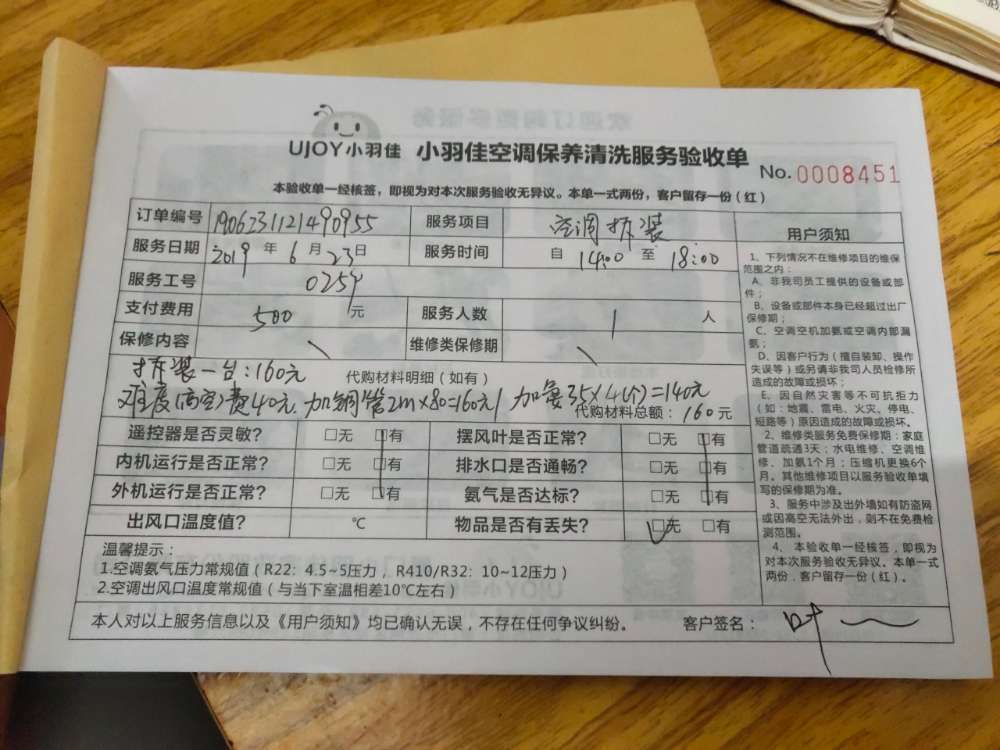 UJOY小羽佳 小羽佳空调保养清洗服务验收单
No.0008451
本验收单一经核签，即视为对本次服务验收无异议。本单一式两份，客户留存一份（红）
订单编号 1906231121490955 服务项目 空调拆装
服务日期 2019 年 6 月 23 日 服务时间 自 14:00 至 18:00
服务工号 0254
支付费用 500 元 服务人数 1 人
保修内容 维修类保修期
拆装一台：160元 代购材料明细（如有）
难度(高空)费40元, 加铜管2m×80=160元, 加氨35×4(个)=140元
代购材料总额：160元
遥控器是否灵敏？ □无 □有 摆风叶是否正常？ □无 □有
内机运行是否正常？ □无 □有 排水口是否通畅？ □无 □有
外机运行是否正常？ □无 □有 氨气是否达标？ □无 □有
出风口温度值？ ℃ 物品是否有丢失？ □无 □有
温馨提示：
1.空调氨气压力常规值（R22：4.5~5压力，R410/R32：10~12压力）
2.空调出风口温度常规值（与当下室温相差10℃左右）
本人对以上服务信息以及《用户须知》均已确认无误，不存在任何争议纠纷。 客户签名：叶
用户须知
1、下列情况不在维修项目的维保
范围之内：
A、非我司员工提供的设备或部
件；
B、设备或部件本身已经超过出厂
保修期；
C、空调空机加氨或空调内部漏
氨；
D、因客户行为（擅自装卸、操作
失误等）或另请非我司人员检修所
造成的故障或损坏；
E、因自然灾害等不可抗拒力
（如：地震、雷电、火灾、停电、
短路等）原因造成的故障或损坏。
2、维修类服务免费保修期：家庭
管道疏通3天；水电维修、空调维
修、加氨1个月；压缩机更换6个
月。其他维修项目以服务验收单填
写的保修期为准。
3、服务中涉及出外墙如有防盗网
或因高空无法外出，则不在免费检
测范围。
4、本验收单一经核签，即视为
对本次服务验收无异议。本单一式
两份，客户留存一份（红）。